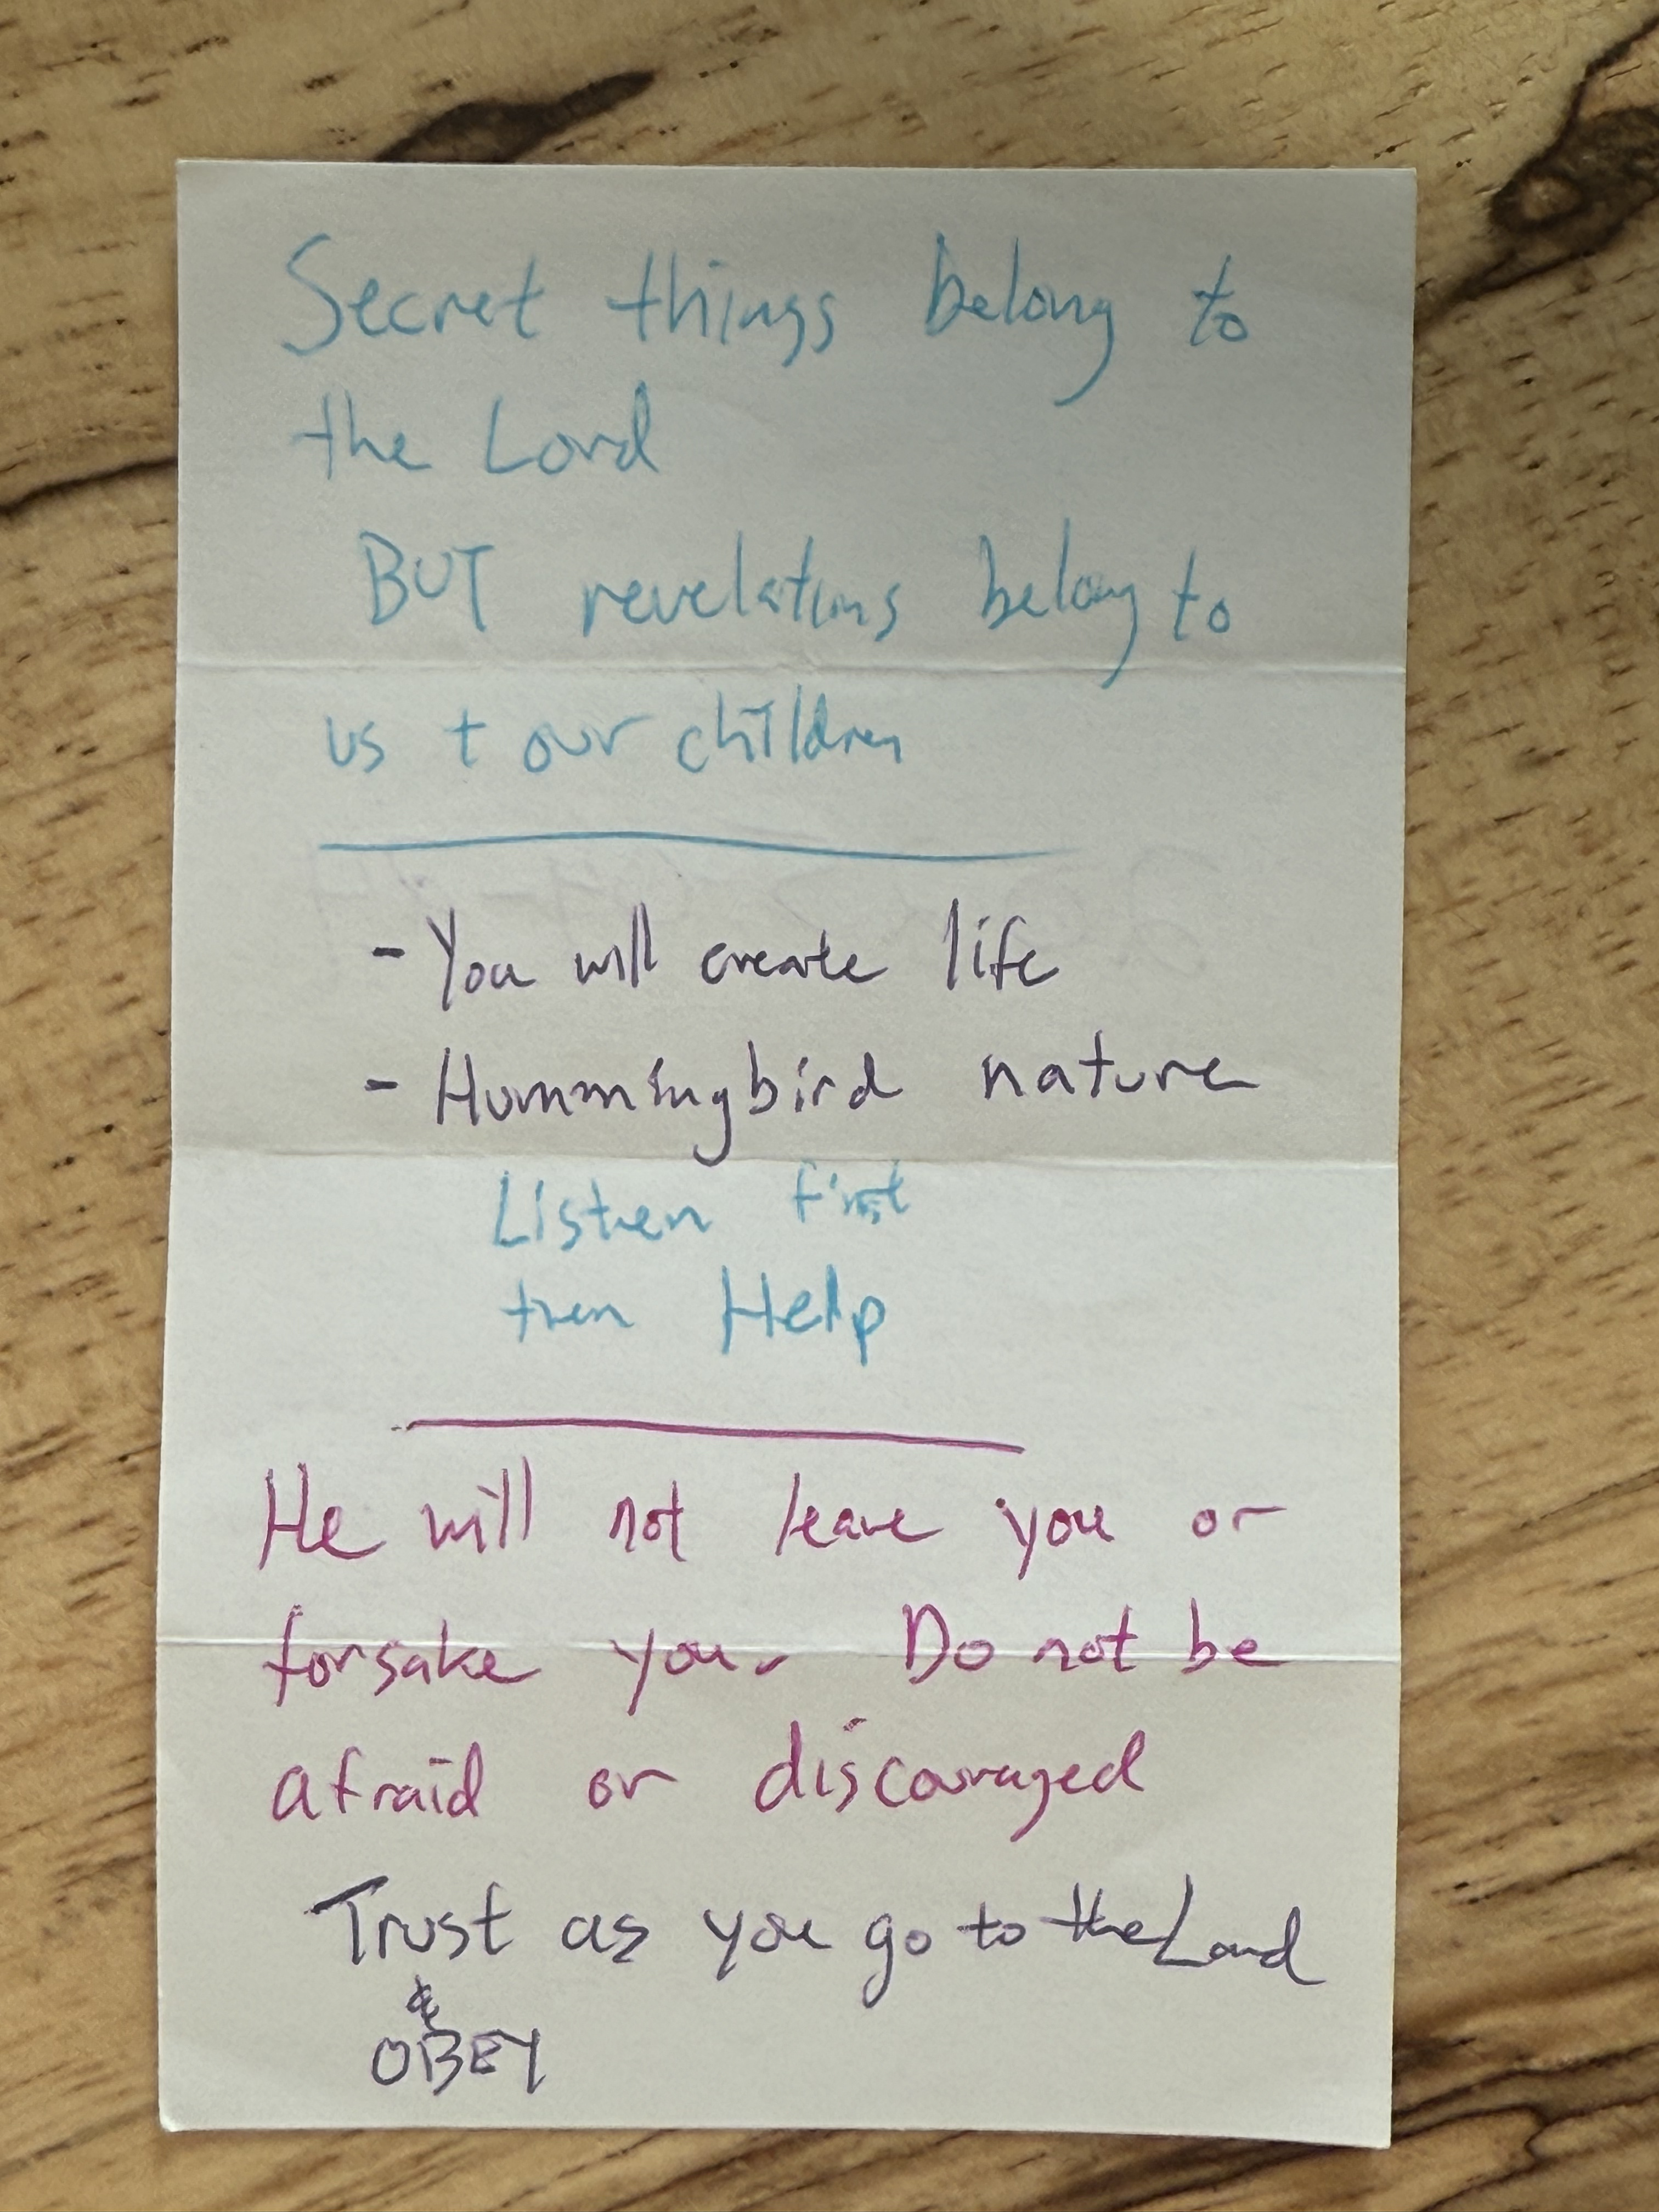 Secret things belong to
the Lord
BUT revelations belong to
us + our children
- You will create life
- Hummingbird nature
Listen first
then Help
He will not leave you or
forsake you. Do not be
afraid or discouraged
Trust as you go to the Lord
&
OBEY